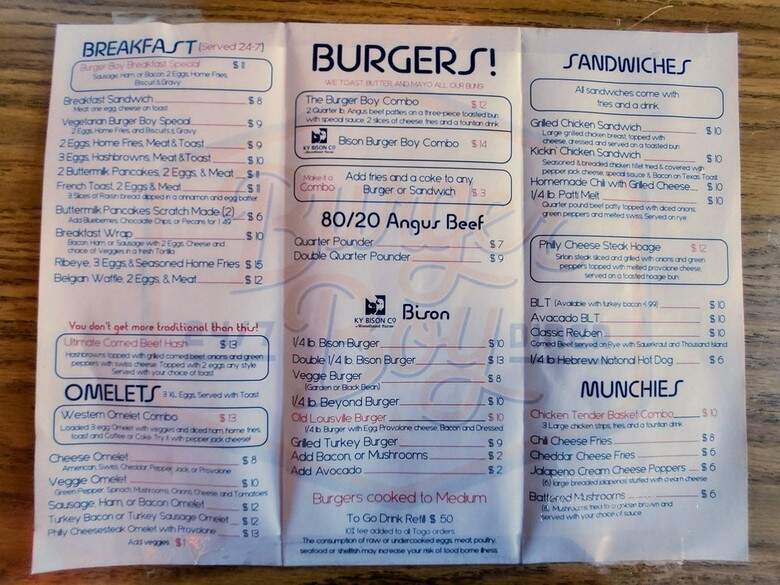 BREAKFAST (Served 24-7)
Burger Boy Breakfast Special $ 11
Sausage, Ham or Bacon, 2 Eggs, Home Fries,
Biscuit & Gravy
Breakfast Sandwich $ 8
Meat, one egg, cheese on toast
Vegetarian Burger Boy Special $ 9
2 Eggs, Home Fries, and Biscuits & Gravy
2 Eggs, Home Fries, Meat & Toast $ 9
3 Eggs, Hashbrowns, Meat & Toast $ 10
2 Buttermilk Pancakes, 2 Eggs, & Meat $ 11
French Toast, 2 Eggs & Meat $ 11
3 Slices of Raisin bread dipped in a cinnamon and egg batter
Buttermilk Pancakes Scratch Made (2) $ 6
Add Blueberries, Chocolate Chips, or Pecans for 1.49
Breakfast Wrap $ 10
Bacon, Ham, or Sausage with 2 Eggs, Cheese and
choice of Veggies in a fresh Tortilla
Ribeye, 3 Eggs, & Seasoned Home Fries $ 15
Belgian Waffle, 2 Eggs, & Meat $ 12
You don't get more traditional than this!
Ultimate Corned Beef Hash $ 13
Hashbrowns topped with grilled corned beef, onions and green
peppers with swiss cheese. Topped with 2 eggs any style
Served with your choice of toast
OMELETS 3 XL Eggs, Served with Toast
Western Omelet Combo $ 13
Loaded 3 egg Omelet with veggies and diced ham, home fries,
toast and Coffee or Coke. Try it with pepper jack cheese!
Cheese Omelet $ 8
American, Swiss, Cheddar, Pepper Jack, or Provolone
Veggie Omelet $ 10
Green Pepper, Spinach, Mushrooms, Onions, Cheese and Tomatoes
Sausage, Ham, or Bacon Omelet $ 12
Turkey Bacon or Turkey Sausage Omelet $ 12
Philly Cheesesteak Omelet with Provolone $ 13
Add veggies $ 1
BURGERS!
WE TOAST, BUTTER, AND MAYO ALL OUR BUNS
The Burger Boy Combo $ 12
2 Quarter lb. Angus beef patties on a three-piece toasted bun
with special sauce, 2 slices of cheese, fries and a fountian drink
KY BISON CO
Woodland Farm
Bison Burger Boy Combo $ 14
Make it a
Combo
Add fries and a coke to any
Burger or Sandwich $ 3
80/20 Angus Beef
Quarter Pounder $ 7
Double Quarter Pounder $ 9
KY BISON CO
Woodland Farm
Bison
1/4 lb. Bison Burger $ 10
Double 1/4 lb. Bison Burger $ 13
Veggie Burger $ 8
(Garden or Black Bean)
1/4 lb. Beyond Burger $ 10
Old Lousville Burger $ 10
1/4 lb. Burger with Egg, Provolone cheese, Bacon and Dressed
Grilled Turkey Burger $ 9
Add Bacon, or Mushrooms $ 2
Add Avocado $ 2
Burgers cooked to Medium
To Go Drink Refil $ .50
10% fee added to all Togo orders
The consumption of raw or undercooked eggs, meat, poultry,
seafood or shellfish may increase your risk of food borne illness.
SANDWICHES
All sandwiches come with
fries and a drink
Grilled Chicken Sandwich $ 10
Large grilled chicken breast, topped with
cheese, dressed, and served on a toasted bun
Kickin' Chicken Sandwich $ 10
Seasoned & breaded chicken fillet fried & covered with
pepper jack cheese, special sauce & Bacon on Texas Toast
Homemade Chili with Grilled Cheese $ 10
1/4 lb. Patti Melt $ 10
Quarter pound beef patty topped with diced onions,
green peppers and melted swiss. Served on rye
Philly Cheese Steak Hoage $ 12
Sirloin steak sliced and grilled with onions and green
peppers topped with melted provolone cheese,
served on a toasted hoagie bun
BLT (Available with turkey bacon 4.99) $ 10
Avacado BLT $ 10
Classic Reuben $ 10
Corned Beef served on Rye with Sauerkraut and Thousand Island
1/4 lb Hebrew National Hot Dog $ 6
MUNCHIES
Chicken Tender Basket Combo $ 10
3 Large chicken strips, fries, and a fountian drink
Chili Cheese Fries $ 8
Cheddar Cheese Fries $ 6
Jalapeno Cream Cheese Poppers $ 6
(6) large breaded jalapenos stuffed with cream cheese
Battered Mushrooms $ 6
Mushrooms fried to a golden brown and
served with your choice of sauce